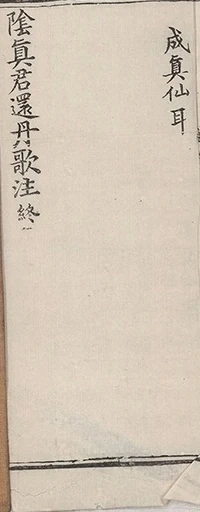 成眞仙耳
陰眞君還丹歌注終